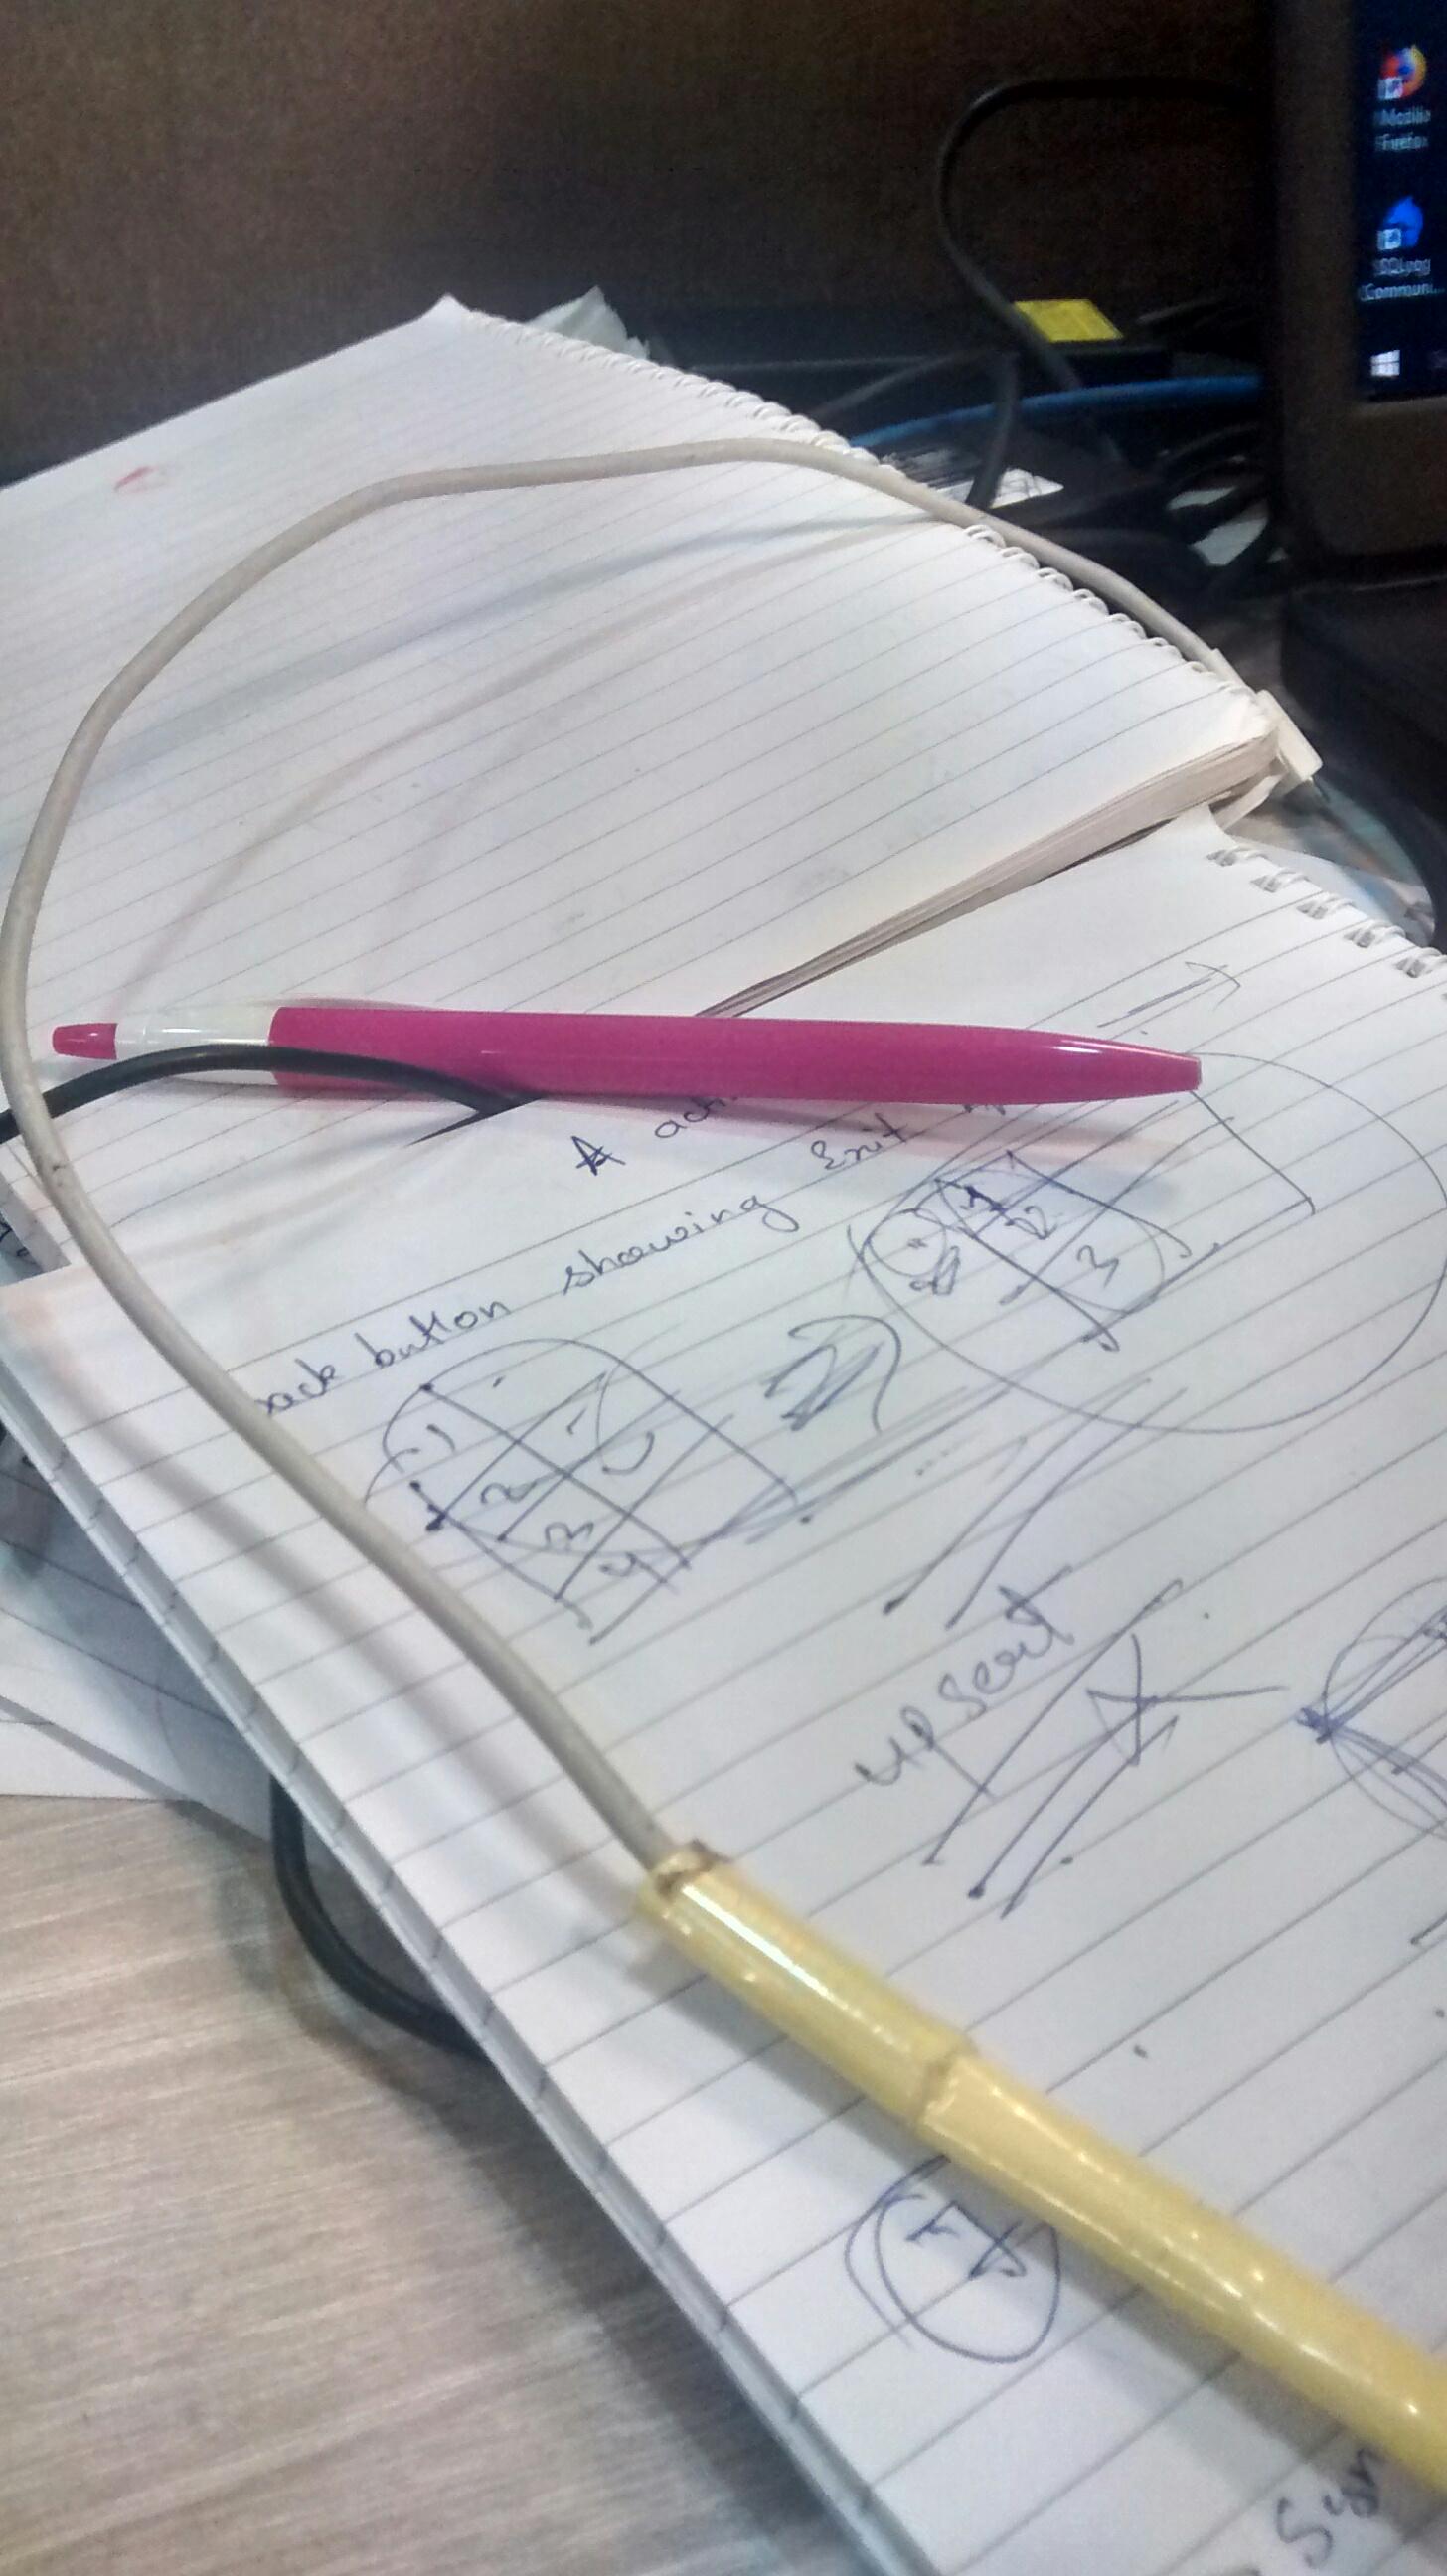 Mozilla
Firefox
SQLyog
Communi...
A
back button showing Exit
1 2
3
1
2
3
4
upsert
7
Syn